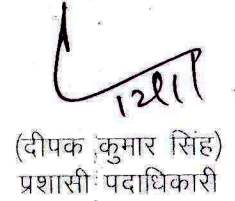 (दीपक कुमार सिंह)
प्रशासी पदाधिकारी